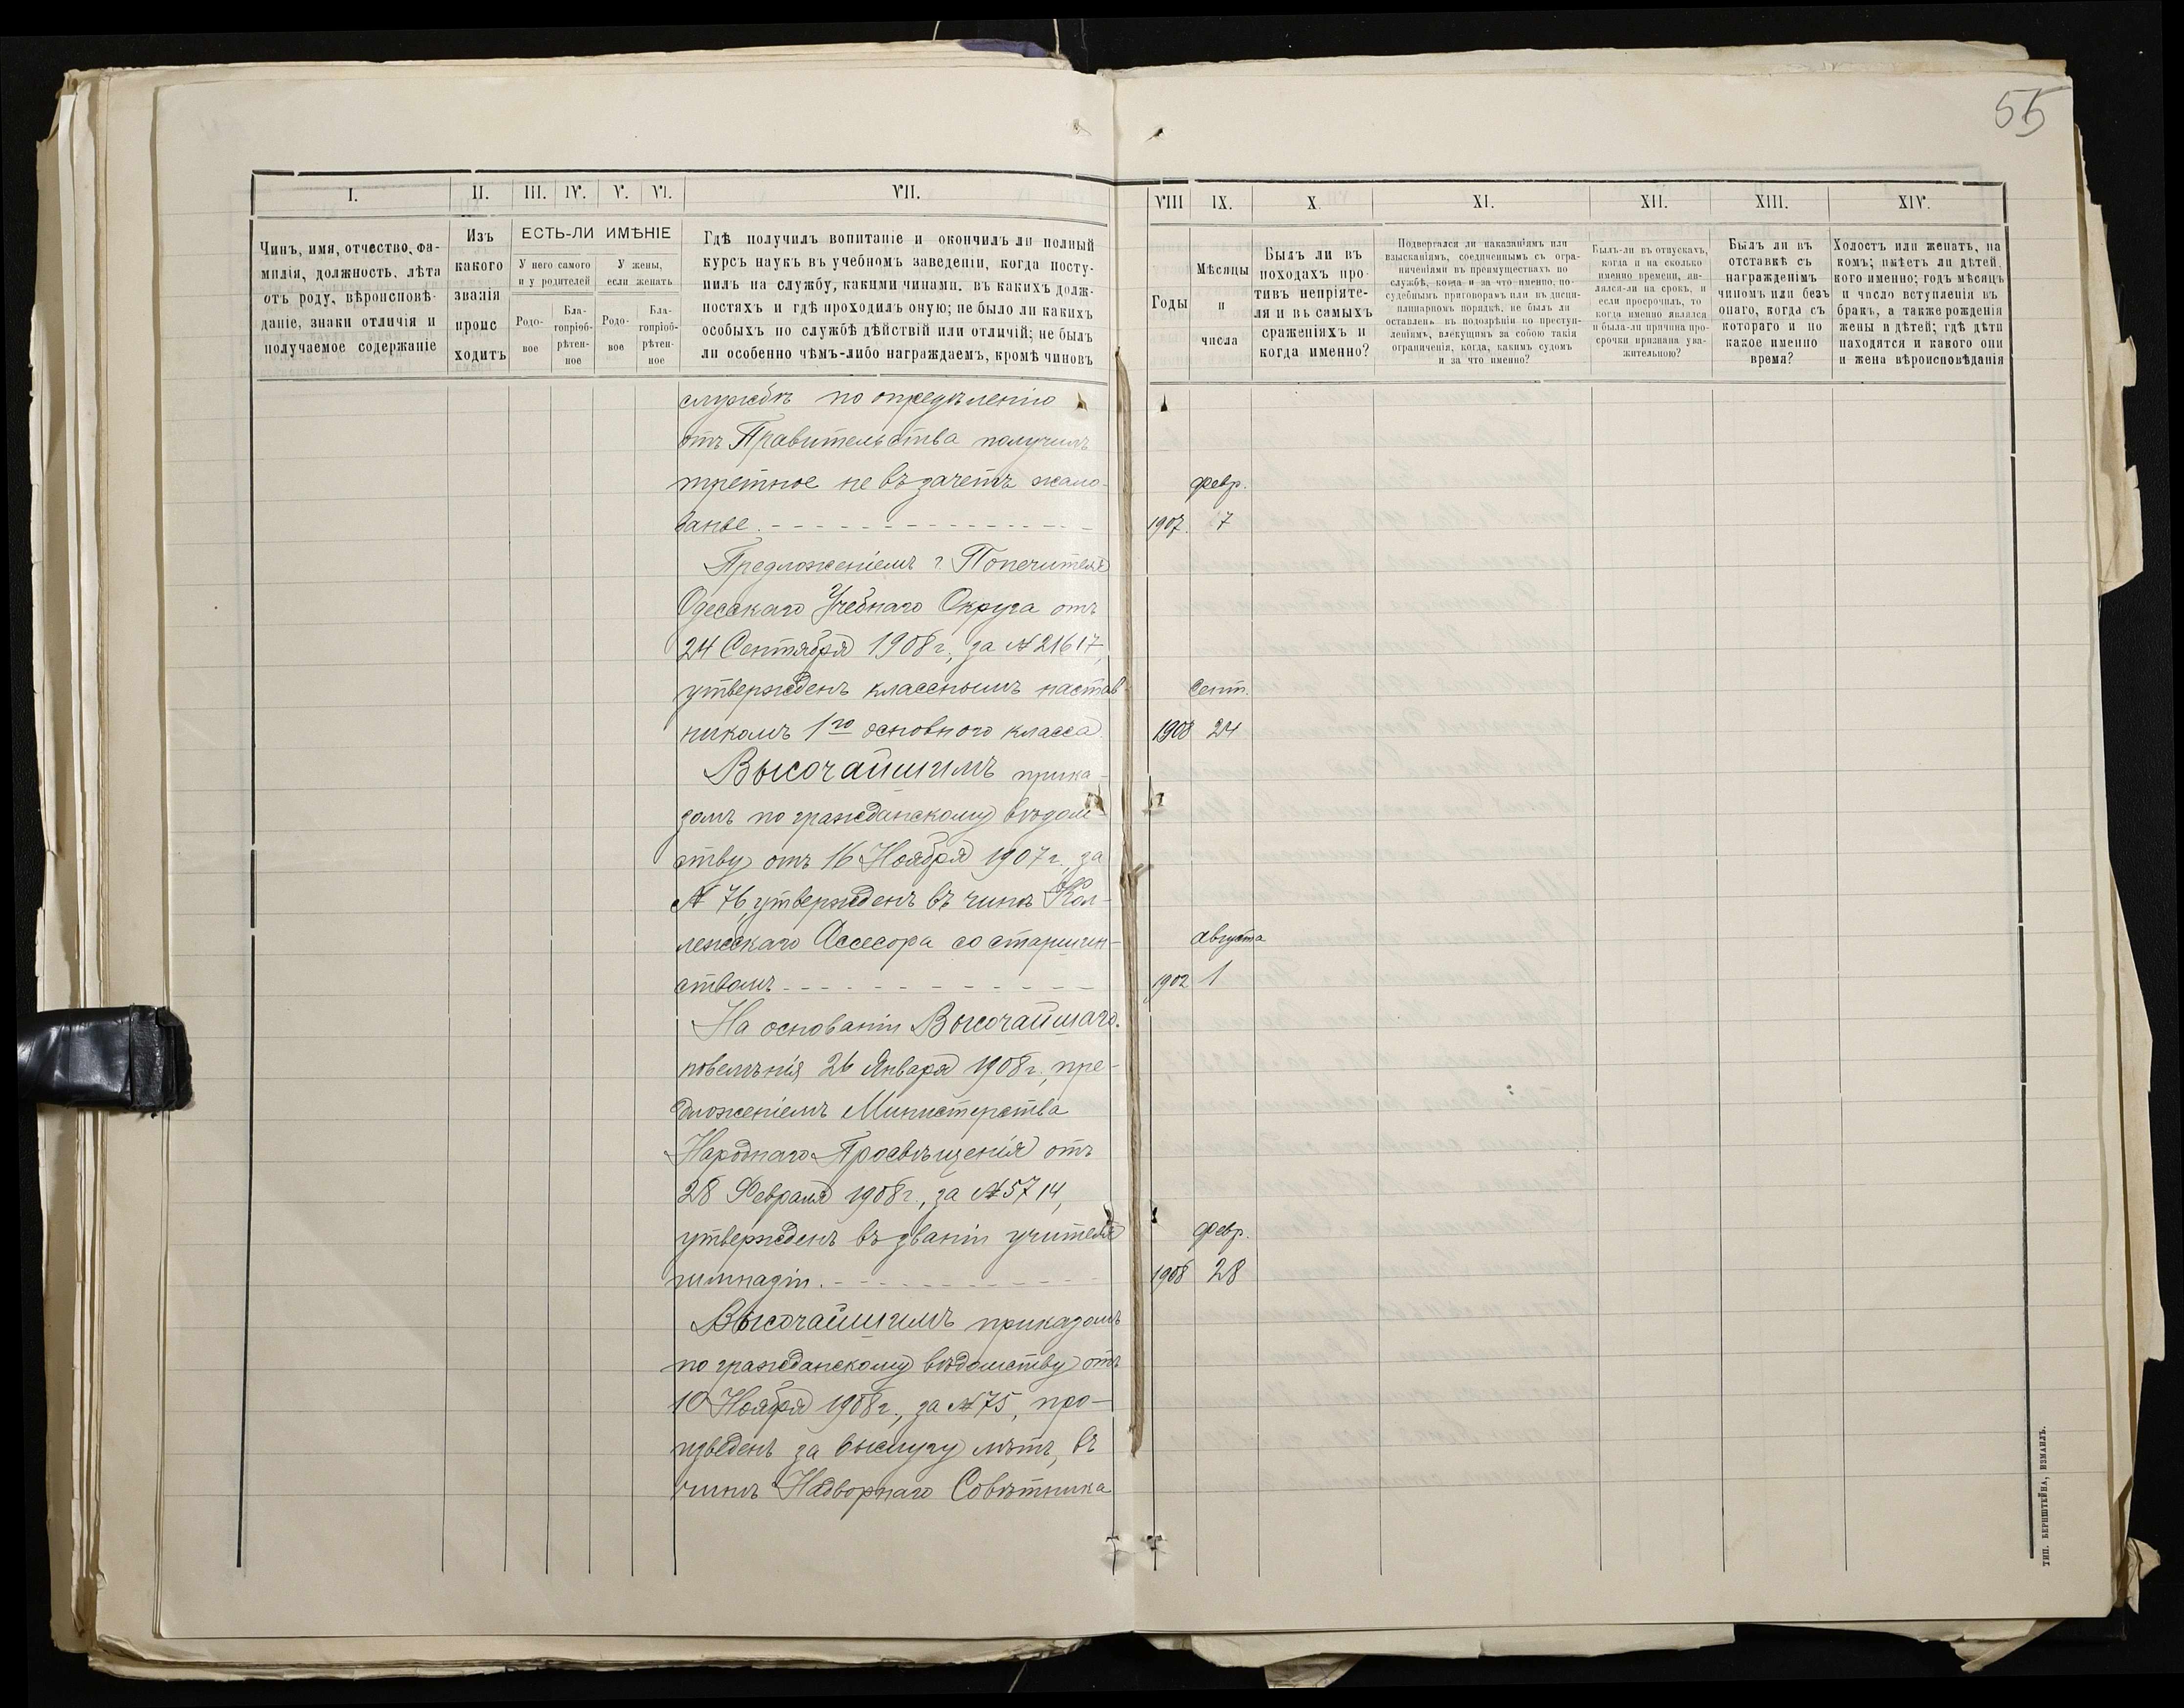 55
I. II. III. IV. V. VI. VII. VIII IX. X. XI. XII. XIII. XIV.
Чинъ, имя, отчество, фа-
милія, должность, лѣта
отъ роду, вѣроисповѣ-
даніе, знаки отличія и
получаемое содержаніе
Изъ
какого
званія
проис
ходитъ
ЕСТЬ-ЛИ ИМѢНІЕ
У него самого
и у родителей
У жены,
если женатъ
Родо-
вое
Бла-
гопріоб-
рѣтен-
ное
Родо-
вое
Бла-
гопріоб-
рѣтен-
ное
Гдѣ получилъ вопитаніе и окончилъ ли полный
курсъ наукъ въ учебномъ заведеніи, когда посту-
пилъ на службу, какими чинами. въ какихъ долж-
ностяхъ и гдѣ проходилъ оную; не было ли какихъ
особыхъ по службѣ дѣйствій или отличій; не былъ
ли особенно чѣмъ-либо награждаемъ, кромѣ чиновъ
Годы
Мѣсяцы
и
числа
Былъ ли въ
походахъ про-
тивъ непріяте-
ля и въ самыхъ
сраженіяхъ и
когда именно?
Подвергался ли наказаніямъ или
взысканіямъ, соединеннымъ съ огра-
ниченіями въ преимуществахъ по
службѣ, когда и за что именно, по-
судебнымъ приговорамъ или въ дисци-
плинарномъ порядкѣ, не былъ ли
оставленъ въ подозрѣніи по преступ-
леніямъ, влекущимъ за собою такія
ограниченія, когда, какимъ судомъ
и за что именно?
Былъ-ли въ отпускахъ,
когда и на сколько
именно времени, яв-
лялся-ли на срокъ, и
если просрочилъ, то
когда именно явился
и была-ли причина про-
срочки признана ува-
жительною?
Былъ ли въ
отставкѣ съ
награжденіемъ
чиномъ или безъ
онаго, когда съ
котораго и по
какое именно
время?
Холостъ или женатъ, на
комъ; имѣетъ ли дѣтей,
кого именно; годъ мѣсяцъ
и число вступленія въ
бракъ, а также рожденія
жены и дѣтей; гдѣ дѣти
находятся и какого они
и жена вѣроисповѣданія
службѣ по опредѣленію
отъ Правительства получилъ
третное не въ зачетъ жало- февр.
ванье. 1907. 7
Предложеніемъ г. Попечителя
Одесскаго Учебнаго Округа отъ
24 Сентября 1908 г., за № 21617,
утвержденъ класснымъ настав- Сент.
никомъ 1го основного класса 1908 24
Высочайшимъ прика-
зомъ по гражданскому вѣдом-
ству отъ 16 Ноября 1907 г. за
№ 76, утвержденъ въ чинѣ Кол-
лежскаго Ассесора со старшин- августа
ствомъ 1902 1
На основаніи Высочайшаго
повелѣнія 26 Января 1908 г., пре-
дложеніемъ Министерства
Народнаго Просвѣщенія отъ
28 Февраля 1908 г., за № 5714,
утвержденъ въ званіи учителя февр.
гимназіи. 1908 28
Высочайшимъ приказомъ
по гражданскому вѣдомству отъ
10 Ноября 1908 г., за № 75, про-
изведенъ за выслугу лѣтъ, въ
чинъ Надворнаго Совѣтника
ТИП. БЕРНШТЕЙНА, ИЗМАИЛЪ.